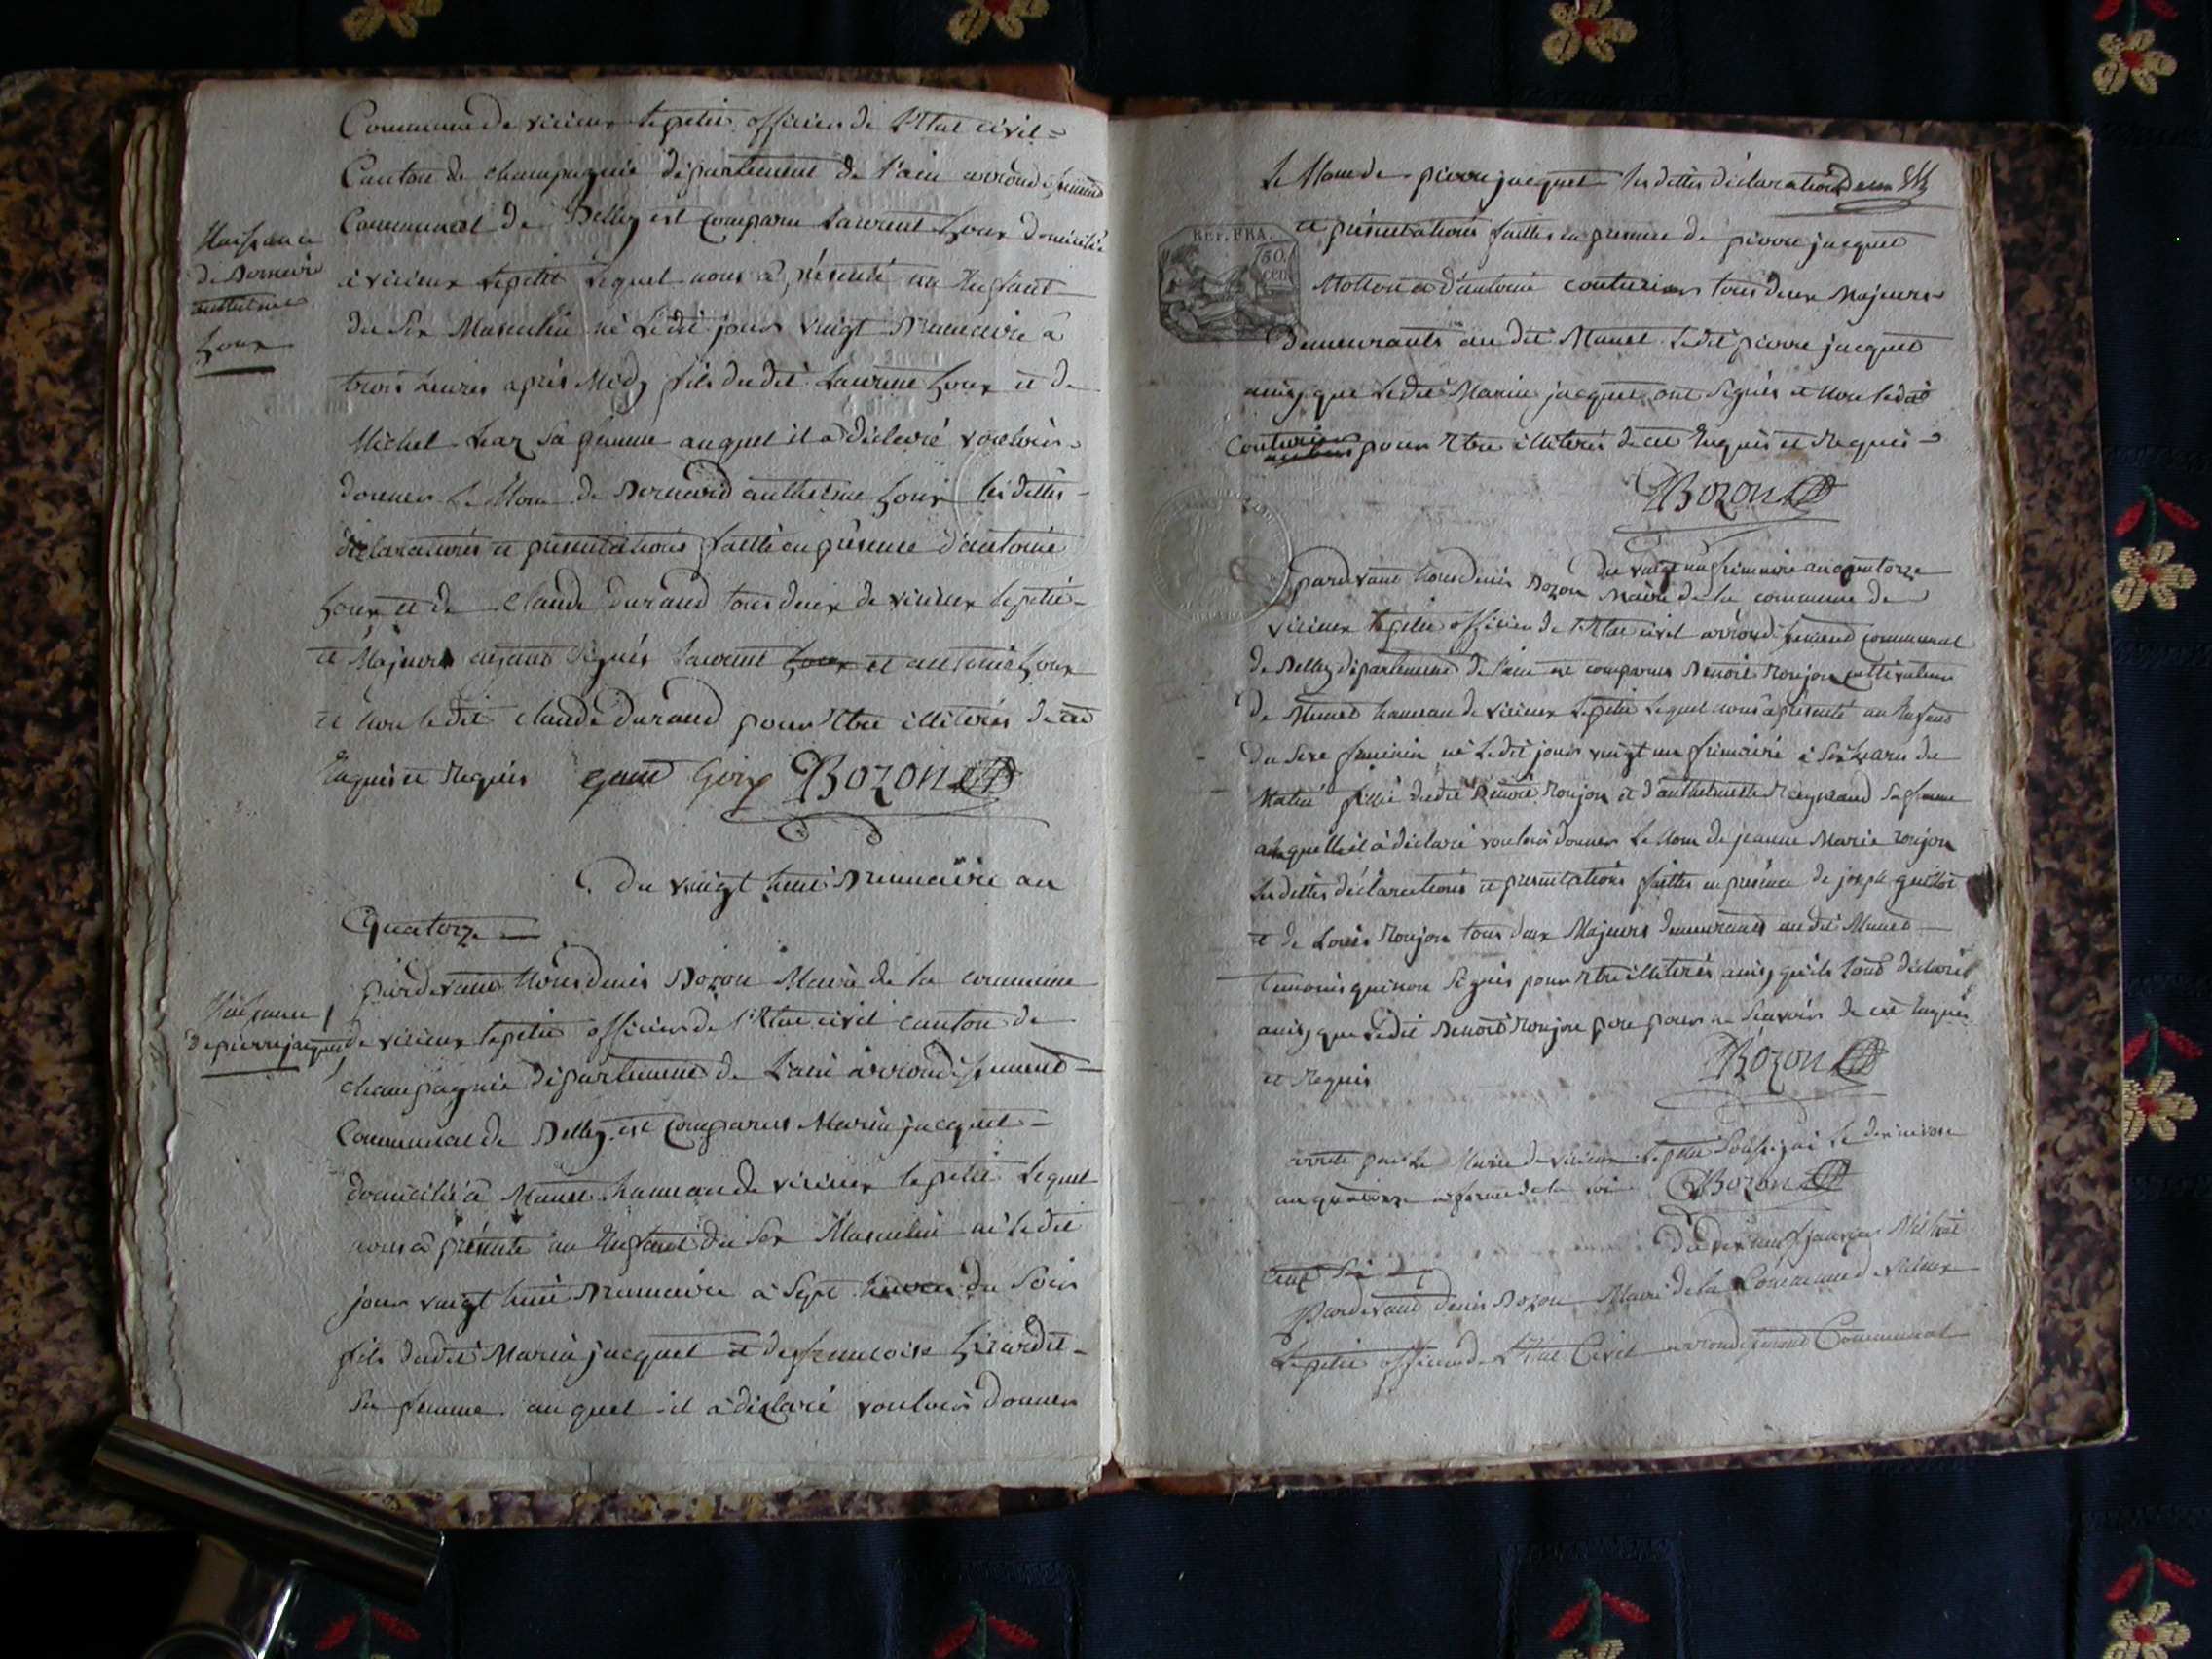 Commune de virieux le petit officier de l'Etat civil =
Canton de champagnie département de l'ain arrondissement
Communal de Belley est comparu Laurent Goux domicilié
à virieux le petit lequel nous à présenté un Enfant
Naissance
de Bernard
anthelme
Goux
du sex Masculin né le dit jour vingt Brumaire à
trois heures après Midy fils du dit Laurent Goux et de
Michel sa femme auquel il à déclaré vouloir
donner le Nom de Bernard anthelme Goux les dittes
déclarations et présentations faitte en présence d'antoine
Goux et de Claude Durand tous deux de virieux le petit
et Majeurs ayant signés Laurent Goux et antoine Goux
et Non le dit claude Durand pour Etre illiterés de ce
Enquis et Requis Goux BOZON
Du vingt huit Brumaire an
Quatorze
pardevant Nous denis Bozon Maire de la commune
Naissance
de pierre jacquet
de virieux le petit officier de l'Etat civil canton de
champagnie département de l'ain arrondissement
Communal de Belley est comparus Marin jacquet
domicilié à Munet hameau de virieux le petit lequel
nous à présenté un Enfant du sex Masculin né le dit
jour vingt huit Brumaire à sept heures du soir
fils du dit Marin jacquet et de francoise
sa femme auquel il à déclaré vouloir donner
Le Nom de pierre jacquet les dittes déclarations
REP. FRA.
50
cen
et présentations faittes en présence de pierre jacquet
Mollon et d'antoine couturier tous deux Majeurs
Demeurants au dit Munet le dit pierre jacquet
ainsy que le dit Marin jacquet ont signés et Non le dit
Couturier pour Etre illiterés de ce Enquis et Requis
BOZON
Du vingt un frimaire an quatorze
pardevant Nous denis Bozon Maire de la commune de
virieux le petit officier de l'Etat civil arrondissement communal
de Belley département de l'ain est comparus Benoit Roujon cultivateur
de Munet hameau de virieux le petit lequel nous à présenté un Enfant
du sexe feminin né le dit jour vingt un frimaire à six heures du
Matin fille du dit Benoit Roujon et d'anthelmette sa femme
à laquelle il à déclaré vouloir donner le Nom de jeanne Marie roujon
les dittes déclarations et présentations faittes en présence de joseph
et de Louis Roujon tous deux Majeurs demeurants au dit Munet
Temoins qui non signés pour Etre illiterés ainsy qu'ils l'ont déclaré
ainsy que le dit Benoit Roujon pere pour ne scavoir de ce Enquis
et Requis BOZON
arretté par le Maire de virieux le petit le dix nivose
an quatorze en forme de la loi BOZON
Du dix neuf janvier Mil huit
Cent Six
Pardevant denis Bozon Maire de la Commune de virieux
le petit officier de l'Etat Civil arrondissement Communal